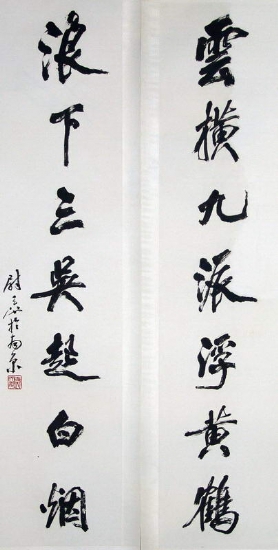 雲橫九派浮黄鶴
浪下三吳起白烟
尉天池於南京